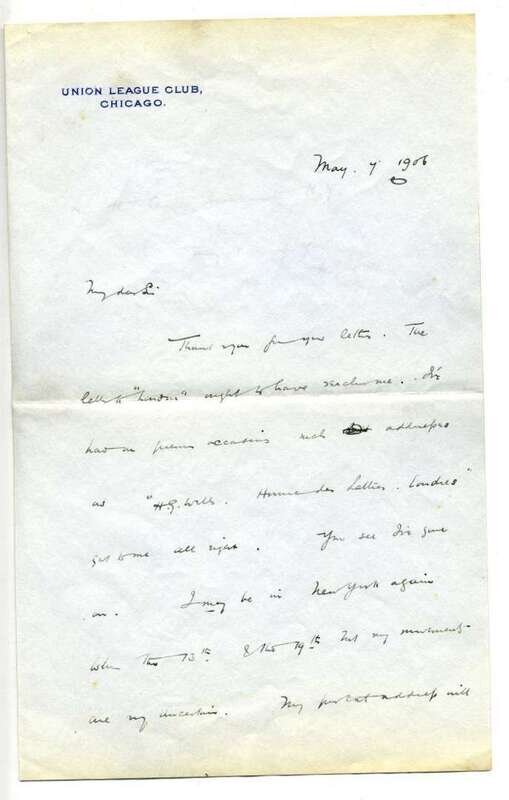 UNION LEAGUE CLUB,
CHICAGO.
May. 7 1906
My dear Sir
Thank you for your letter. The
letter to "London" ought to have reached me. I've
had on previous occasions such addresses
as "H.G. Wells. Homme des Lettres. Londres"
get to me all right. You see I've gone
on. I may be in New York again
when the 13th & the 19th but my movements
are very uncertain. My address will